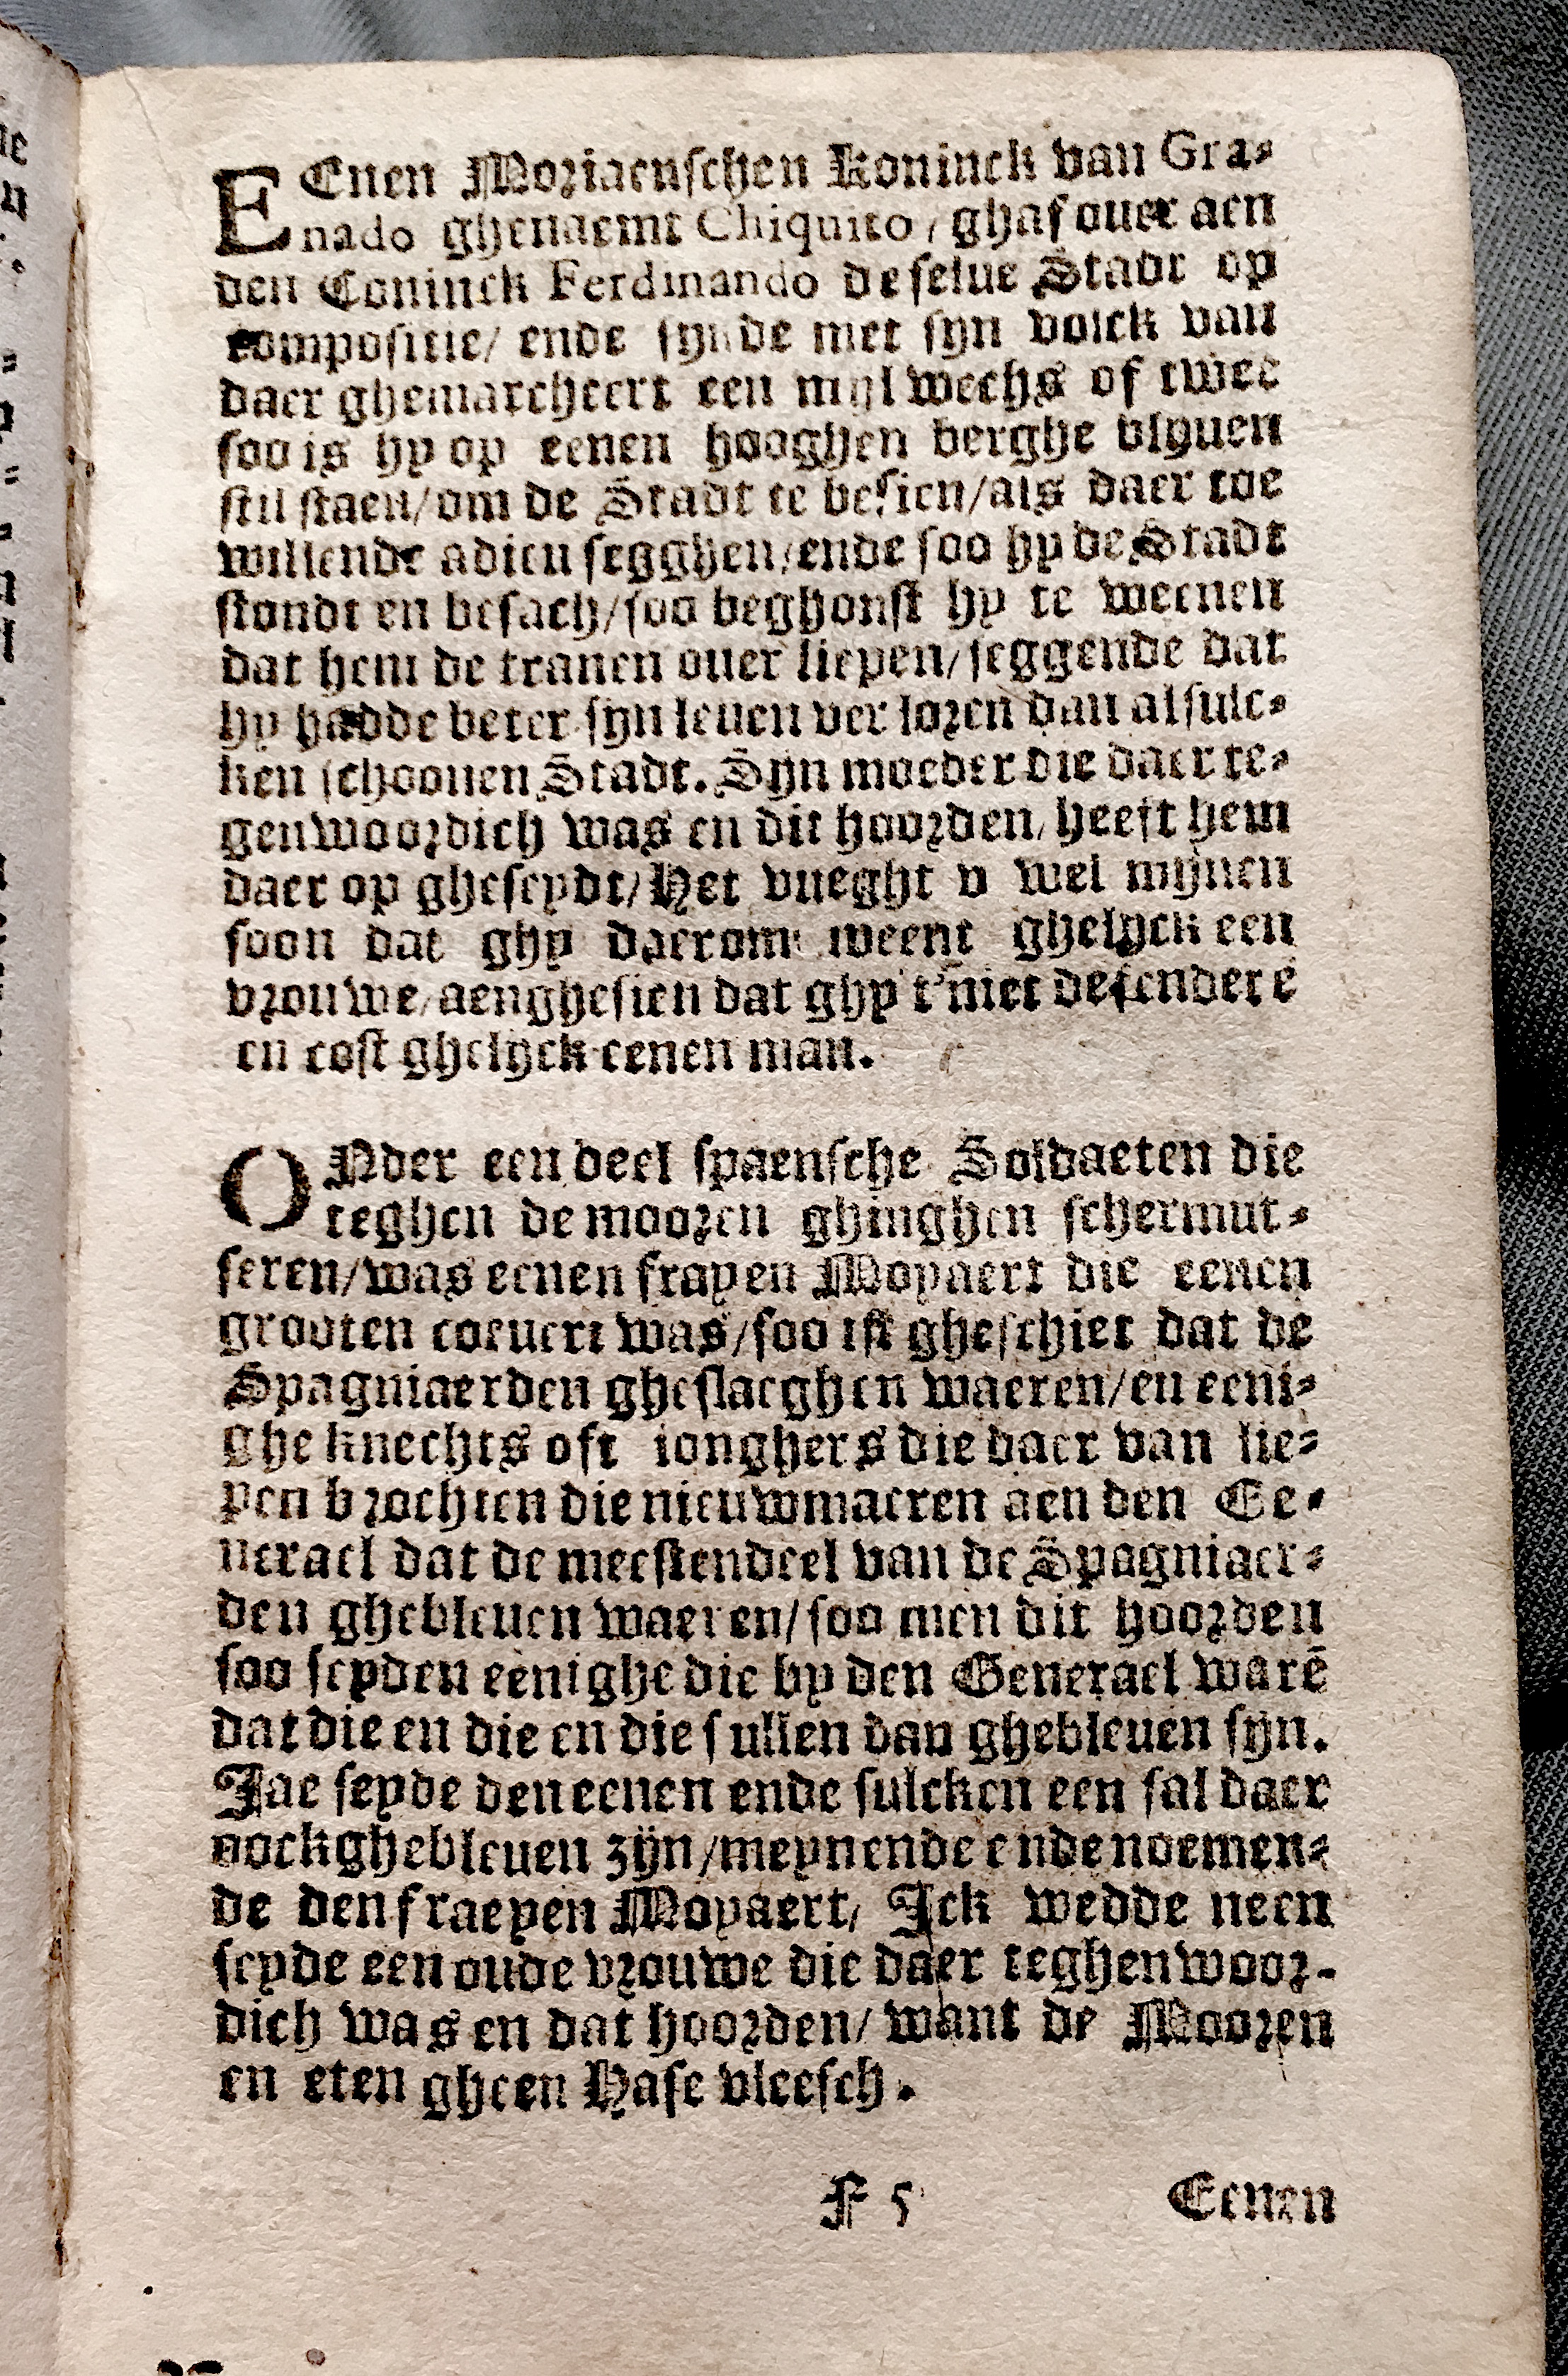 EEnen Moriaenschen Koninck van Gra-
nado ghenaemt Chiquito / ghaf ouer aen
den Coninck Ferdinando de selue Stadt op
compositie / ende synde met syn volck van
daer ghemarcheert een mijl wechs of twee
soo is hy op eenen hooghen berghe blyuen
stil staen / om de Stadt te besien / als daer toe
willende adieu segghen / ende soo hy de Stadt
stondt en besach / soo beghonst hy te weenen
dat hem de tranen ouer liepen / seggende dat
hy hadde beter syn leuen ver loren dan alsulc-
ken schoonen Stadt. Sijn moeder die daer te-
genwoordich was en dit hoorden / heeft hem
daer op gheseydt / Het vueght v wel mijnen
soon dat ghy daerom weent ghelyck een
vrouwe / aenghesien dat ghy t'niet defendere
en cost ghelyck eenen man.
ONder een deel spaensche Soldaeten die
teghen de mooren ghinghen schermut-
seren / was eenen frayen Moyaert die eenen
grooten coeuert was / soo ist gheschiet dat de
Spagniaerden gheslaeghen waeren / en eeni-
ghe knechts oft ionghers die daer van lie-
pen brochten die nieuwmaeren aen den Ge-
nerael dat de meestendeel van de Spagniaer-
den ghebleuen waeren / soo men dit hoorden
soo seyden eenighe die by den Generael warē
dat die en die en die sullen dan ghebleuen syn.
Jae seyde den eenen ende sulcken een sal daer
oock ghebleuen zijn / meynende ende noemen-
de den fraeyen Moyaert / Ick wedde neen
seyde een oude vrouwe die daer teghenwoor-
dich was en dat hoorden / want de Mooren
en eten gheen Hase vleesch.
F 5 Eenen